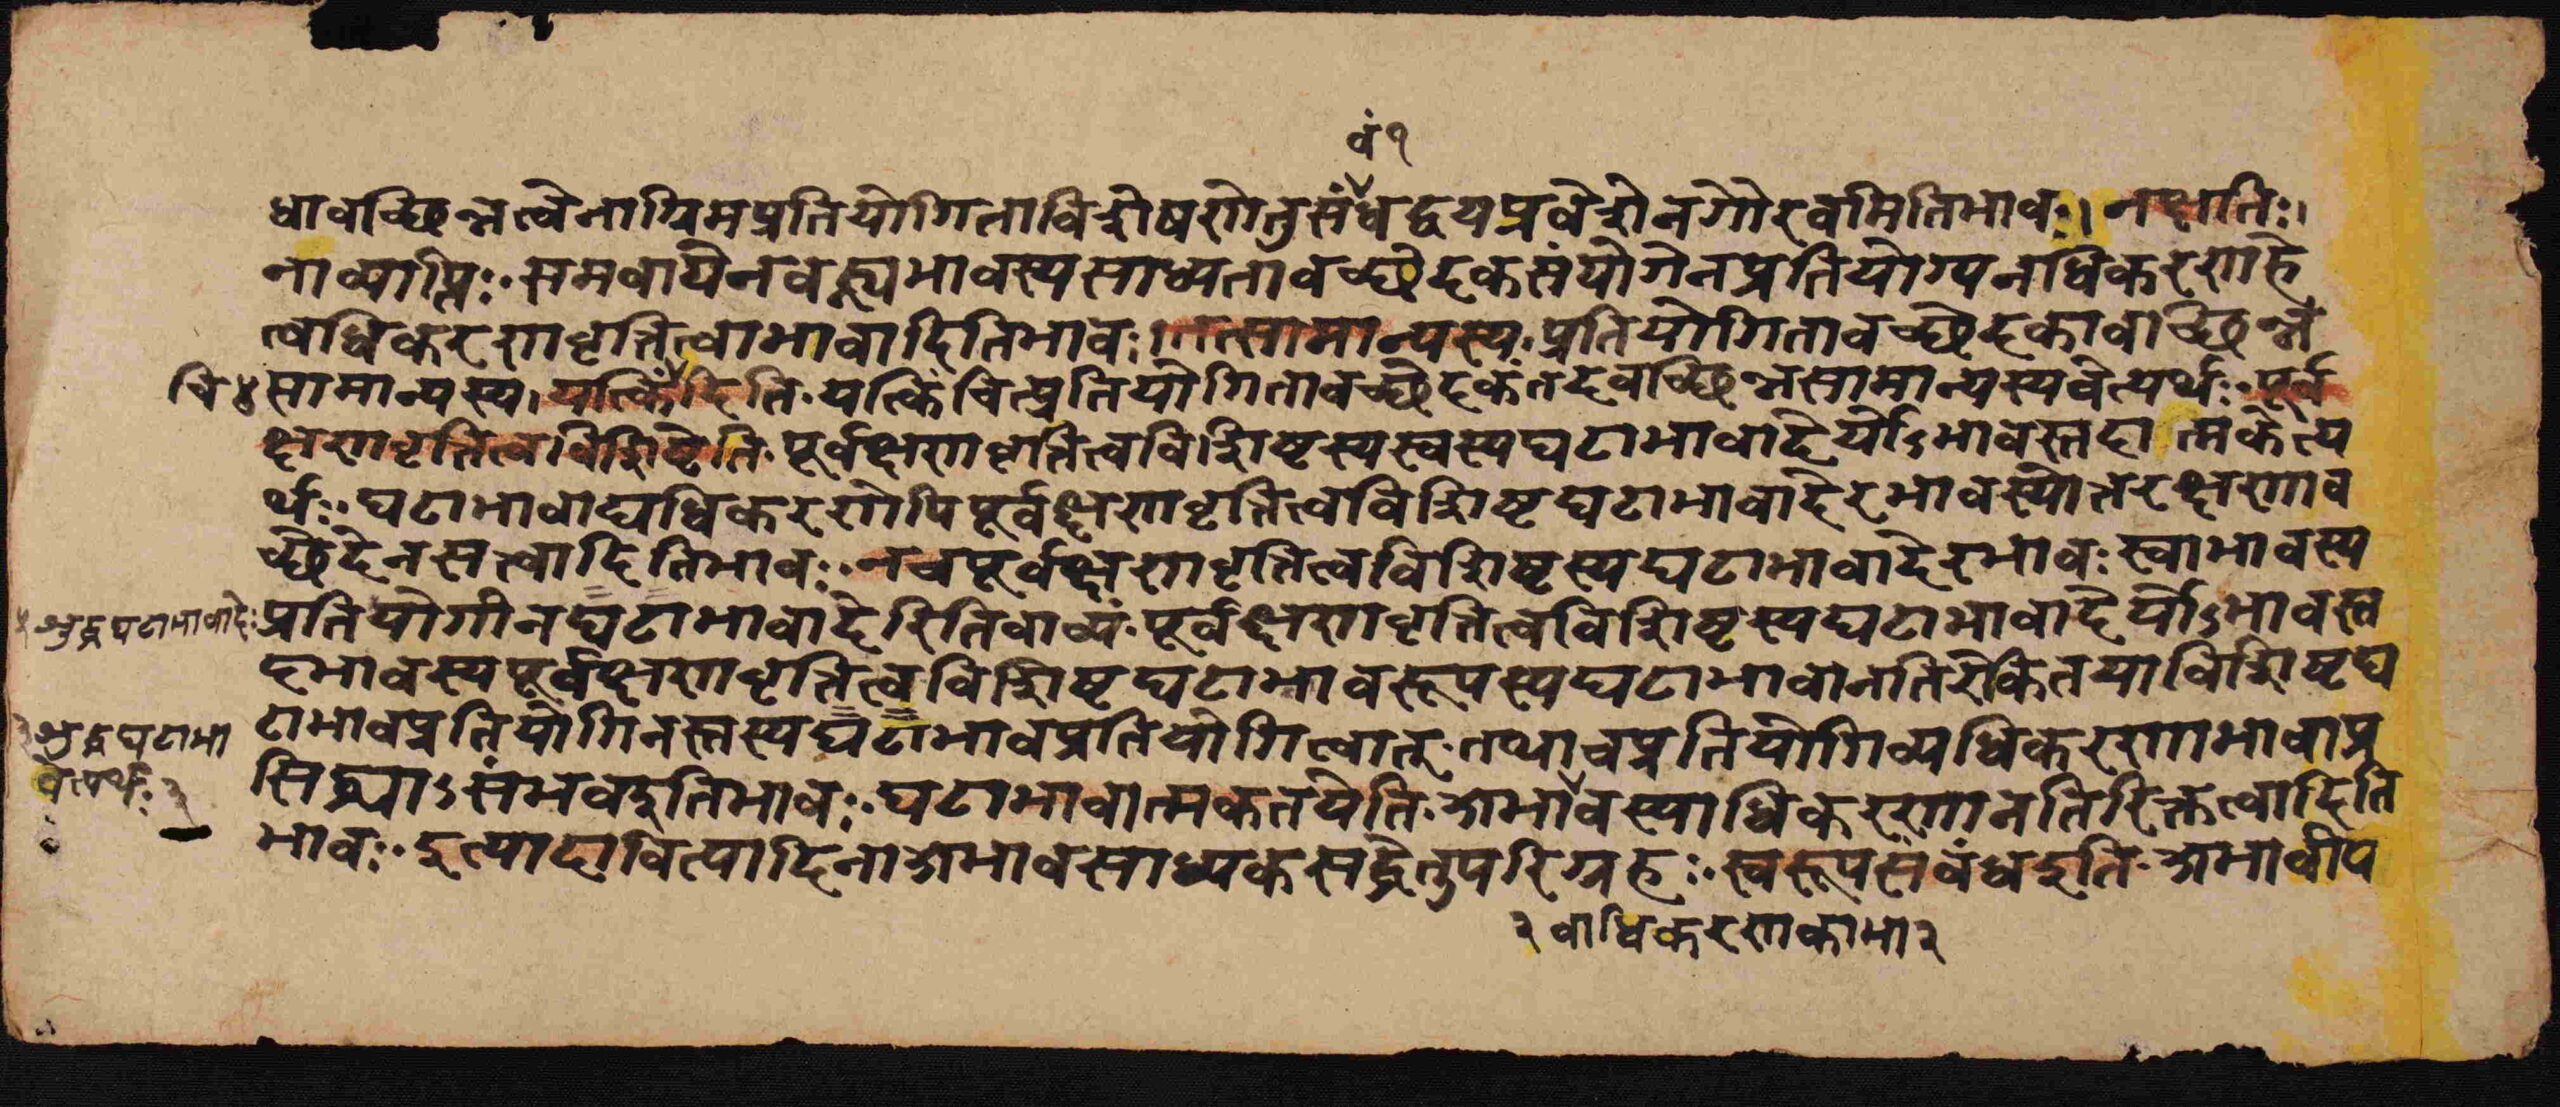 वं१
धावच्छिन्नत्वेनाग्रिमप्रतियोगिताविशेषणेतुसंधद्वयप्रवेशेनगौरवमितिभावः। नक्षतिः।
नाव्याप्तिः॰ समवायेनवह्न्यभावस्यसाध्यतावच्छेदकसंयोगेनप्रतियोग्यनधिकरणहे
त्वधिकरणवृत्तित्वाभावादितिभावः। तत्सामान्यस्य॰ प्रतियोगितावच्छेदकावच्छिन्न
चि४ सामान्यस्य। यत्किंदिति॰ यत्किंचित्प्रतियोगितावच्छेदकंतदवच्छिन्नसामान्यस्यवेत्यर्थः॰ पूर्व
क्षणवृत्तित्वविशिष्टेति॰ पूर्वक्षणवृत्तित्वविशिष्टस्यस्वस्यघटाभावादेर्योऽभावस्तदात्मकेत्य
र्थः॰ घटाभावाद्यधिकरणेपिपूर्वक्षणवृत्तित्वविशिष्टघटाभावादेरभावस्योत्तरक्षणाव
च्छेदेनसत्त्वादितिभावः॰ नचपूर्वक्षणवृत्तित्वविशिष्टस्यघटाभावादेरभावः स्वाभावस्य
शुद्धघटाभावादेः प्रतियोगीनघटाभावादेरितिवाच्यं॰ पूर्वक्षणवृत्तित्वविशिष्टस्यघटाभावादेर्योऽभावस्त
दभावस्यपूर्वक्षणवृत्तित्वविशिष्टघटाभावरूपस्यघटाभावानतिरेकितयाविशिष्टघ
शुद्धघटाभा टाभावप्रतियोगिनस्तस्यघटाभावप्रतियोगित्वात्॰ तथाचप्रतियोगिव्यधिकरणाभावाप्र
वेत्यर्थः २ सिद्ध्याऽसंभवइतिभावः॰ घटाभावात्मकतयेति॰ अभावस्याधिकरणानतिरिक्तत्वादिति
भावः॰ इत्यादावित्यादिनाअभावसाध्यकसद्धेतुपरिग्रहः॰ स्वरूपसंबंधइति॰ अभावीय
३ वाधिकरणकाभा२